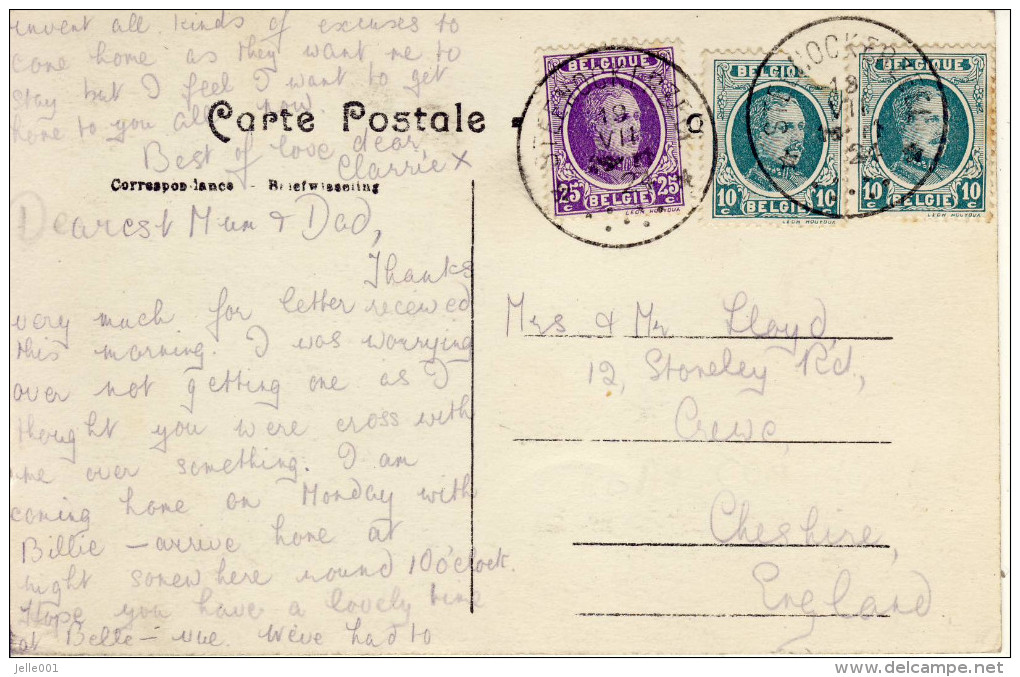 invent all kinds of excuses to
come home as they want me to
stay but I feel I want to get
home to you all now.
Best of love dear,
Clarrie x
Carte Postale
Correspondance - Briefwisseling
Dearest Mum & Dad,
Thanks
very much for letter recieved
this morning. I was worrying
over not getting one as I
thought you were cross with
me over something. I am
coming home on Monday with
Billie – arrive home at
night somewhere round 10 o'clock.
Hope you have a lovely time
at Belle-vue. We've had to
BELGIQUE
25c 25c
BELGIË
LEON HOUYOUX
BELGIQUE
10c 10c
BELGIË
LEON HOUYOUX
BELGIQUE
10c 10c
BELGIË
LEON HOUYOUX
19
VII
18
VII
Mrs & Mr Lloyd,
12, Stoneley Rd,
Crewe,
Cheshire,
England
jelle001
www.delcampe.net